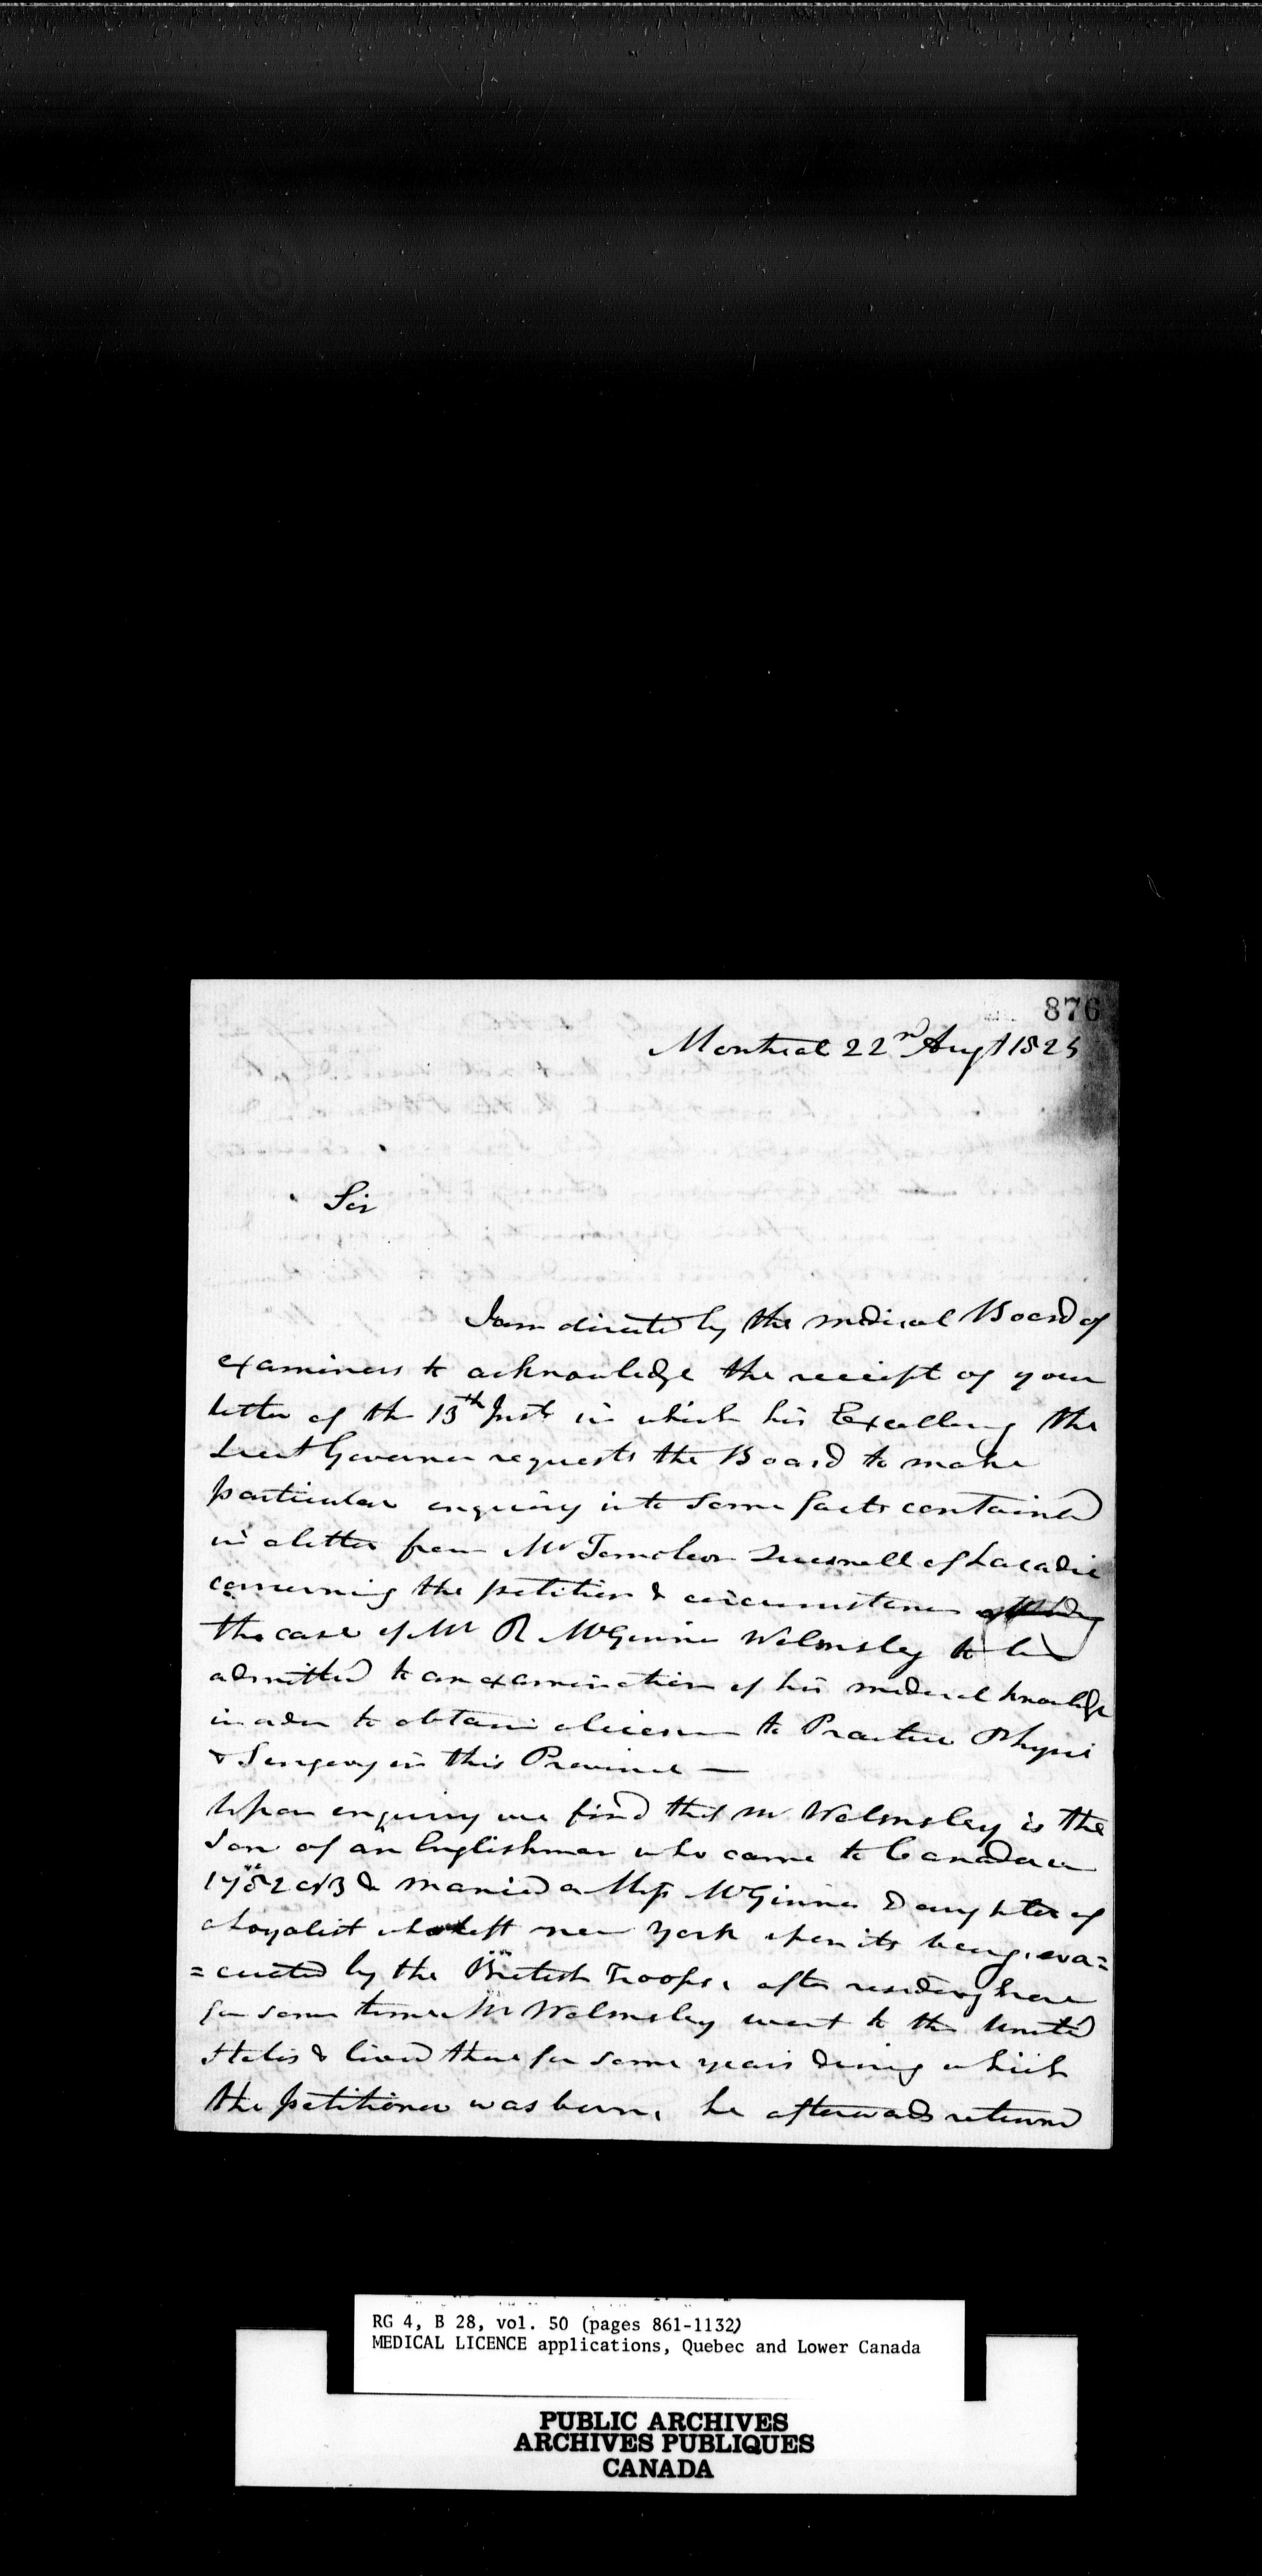 876
Montreal 22nd Augt 1825
Sir
I am directed by the medical Board of
examiners to acknowledge the receipt of your
letter of the 13th Inst in which his Excellency the
Lieut Governor requests the Board to make
particular enquiry into some facts contained
in a letter from Mr Quesnell of Lacadie
concerning the petition & circumstances
the case of Mr R McGinnis Walmsley to be
admitted to an examination of his medical knowledge
in order to obtain a license to Practice Physic
& Surgery in this Province —
Upon enquiry we find that Mr Walmsley is the
Son of an Englishman who came to Canada in
1782 or 3 & married a Miss McGinnis Daughter of
a Loyalist who left new York upon its being eva=
=cuated by the British Troops, after residing here
for some time Mr Walmsley went to the United
States & lived there for some years during which
the petitioner was born, he afterwards returned
RG 4, B 28, vol. 50 (pages 861-1132)
MEDICAL LICENCE applications, Quebec and Lower Canada
PUBLIC ARCHIVES
ARCHIVES PUBLIQUES
CANADA